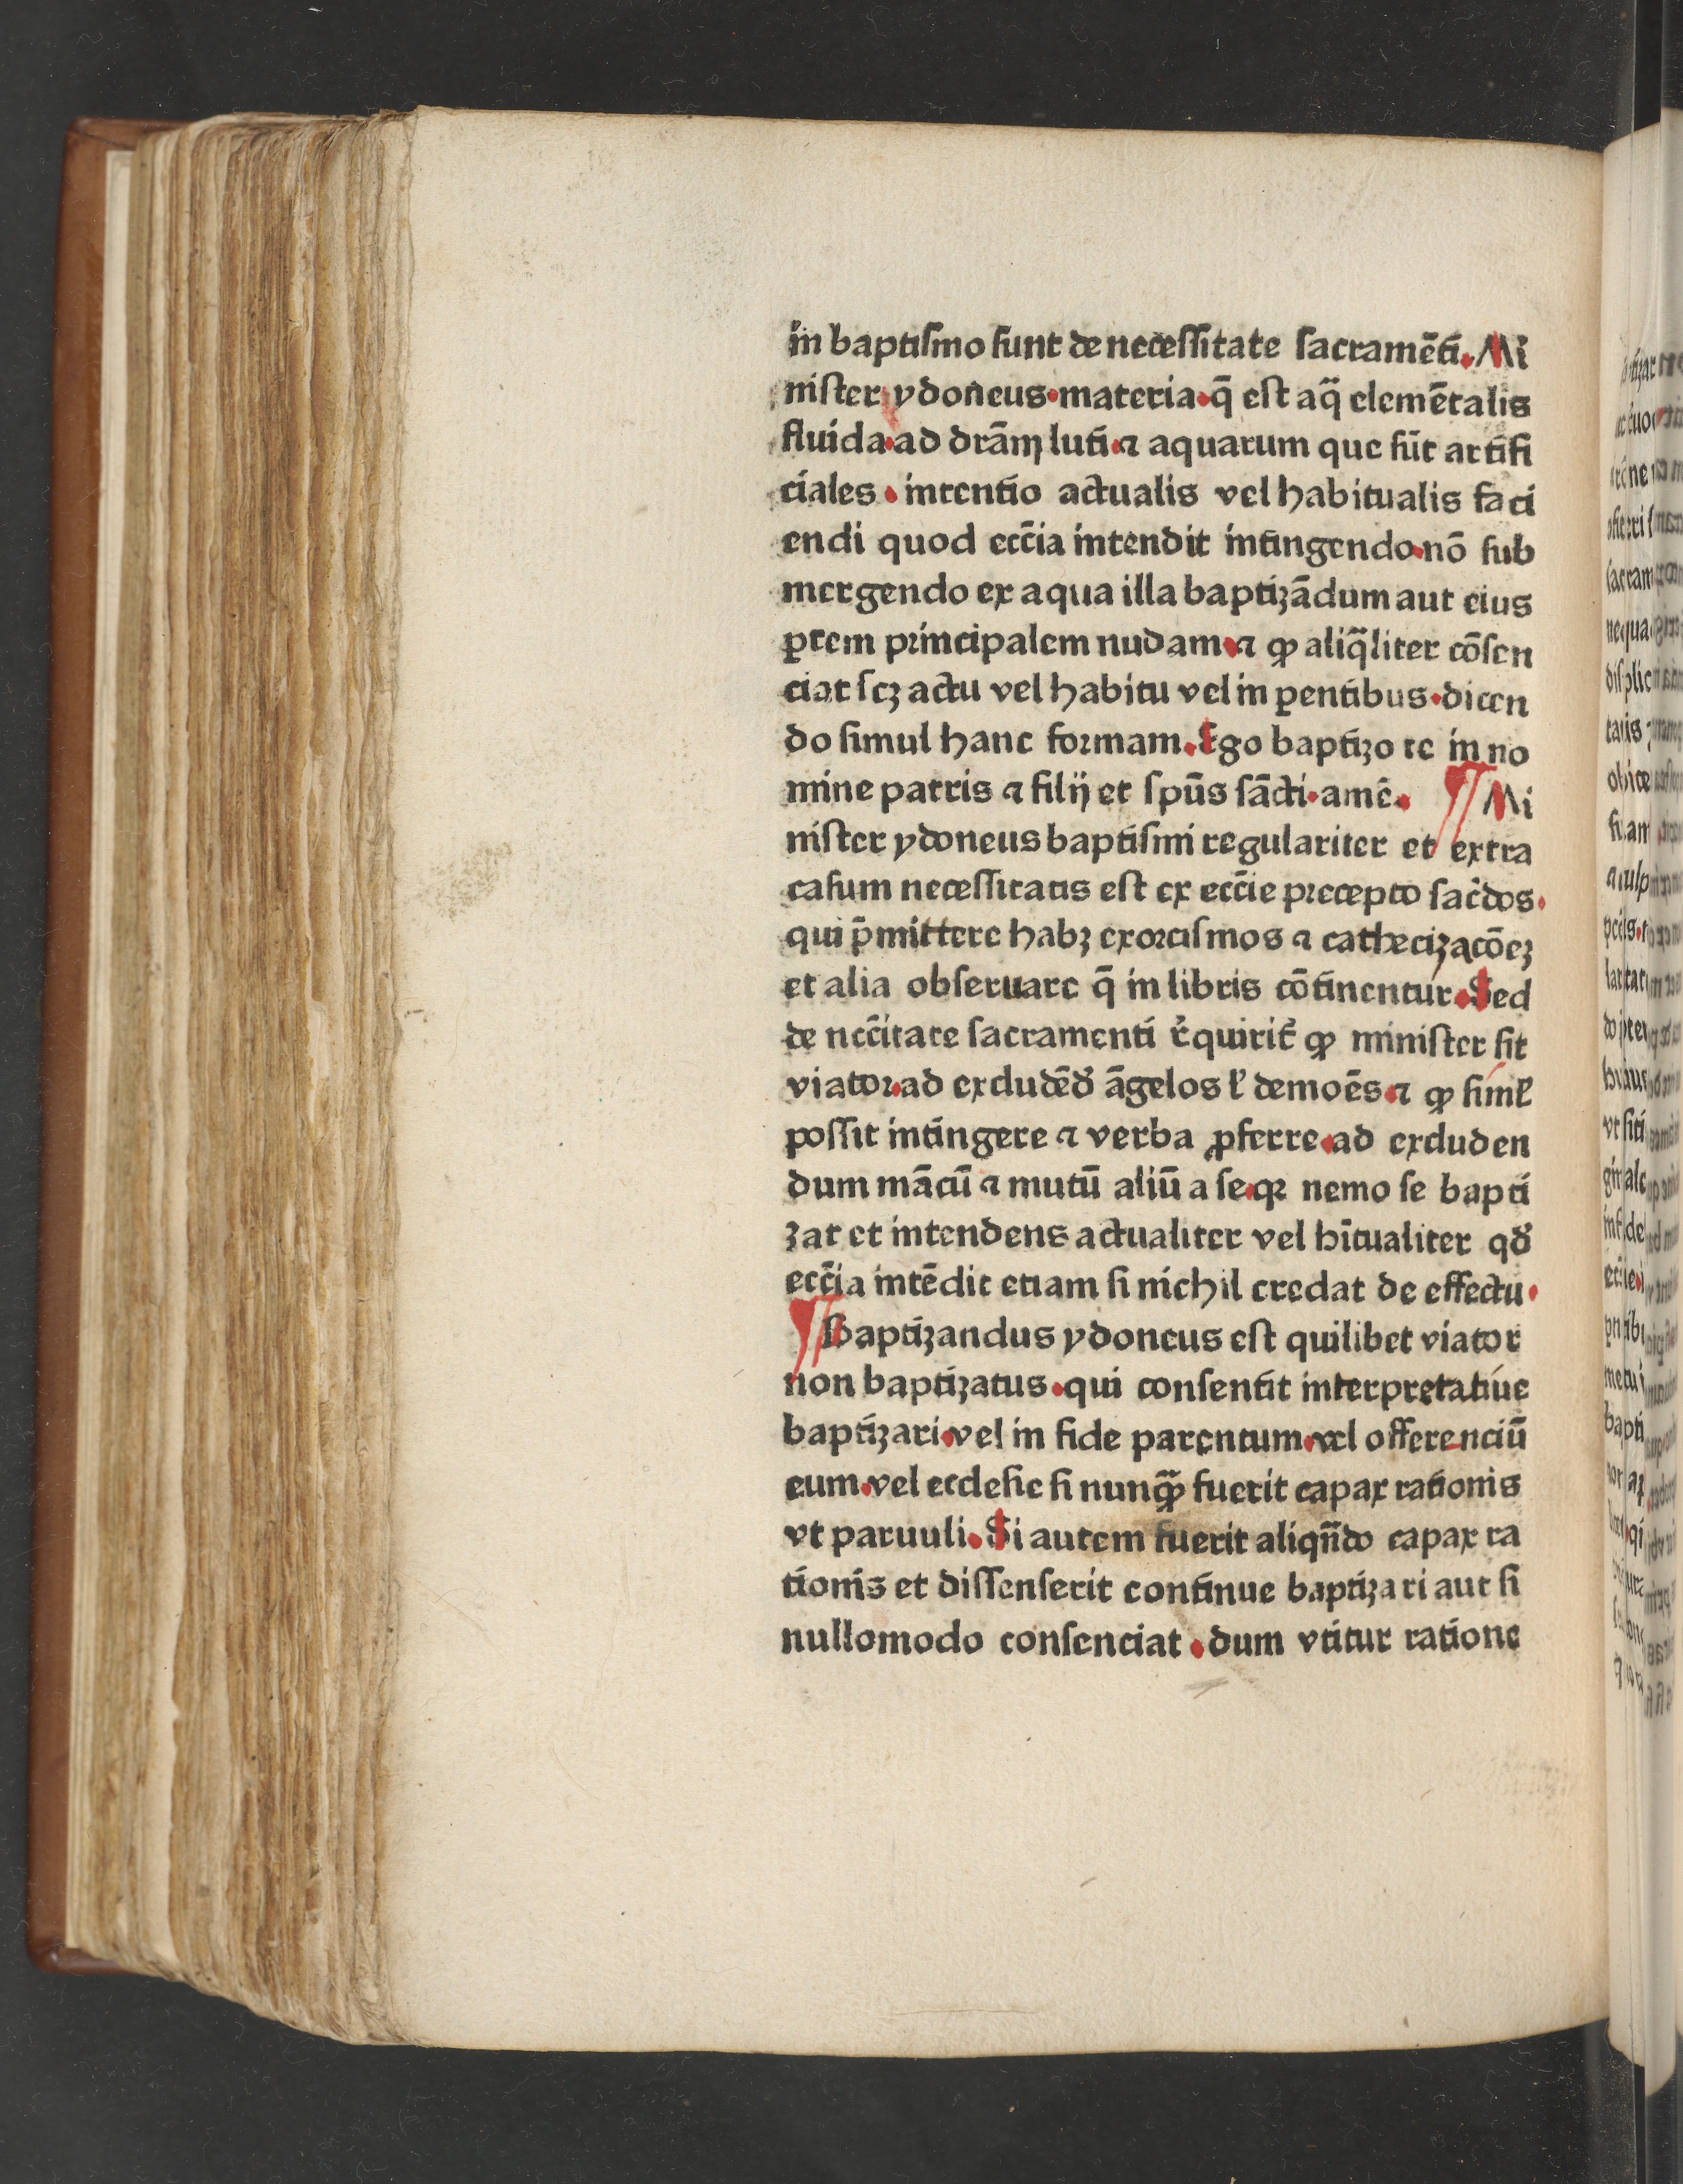 in baptiſmo ſunt de neceſſitate ſacramēti. Mi
niſter ydoneus. materia. q̄ eſt aq̄ elemētalis
fluida. ad drām luti. ⁊ aquarum que ſūt artifi
ciales. intentio actualis vel habitualis faci
endi quod ecc̄ia intendit intingendo. nō ſub
mergendo ex aqua illa baptizādum aut eius
ꝑtem principalem nudam. ⁊ ꝙ aliq̄liter cōſen
ciat ſcꝫ actu vel habitu vel in ꝑentibus. dicen
do ſimul hanc formam. Ego baptizo te in no
mine patris ⁊ filij et ſpūs ſācti. amē. ¶ Mi
niſter ydoneus baptiſmi regulariter et extra
caſum neceſſitatis eſt ex ecc̄ie precepto ſac̄dos.
qui p̄mittere habꝫ exorciſmos ⁊ cathecizacōeꝫ
et alia obſeruare q̄ in libris cōtinentur. Sed
de nec̄citate ſacramenti r̄quirit̄ ꝙ miniſter ſit
viator. ad excludēdꝰ āgelos ł demoēs. ⁊ ꝙ ſimł
poſſit intingere ⁊ verba ꝓferre. ad excluden
dum mācū ⁊ mutū aliū a ſe. qꝛ nemo ſe bapti
zat et intendens actualiter vel hītualiter qđ
ecc̄ia intēdit etiam ſi nichil credat de effectu.
¶ Baptizandus ydoneus eſt quilibet viator
non baptizatus. qui conſentit interpretatiue
baptizari. vel in fide parentum. vel offerenciū
eum. vel eccleſie ſi nunqꝫ̄ fuerit capax rationis
vt paruuli. Si autem fuerit aliqn̄do capax ra
tionis et diſſenſerit continue baptizari aut ſi
nullomodo conſenciat. dum vtitur ratione